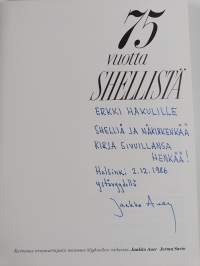 75
vuotta
SHELLISTÄ
ERKKI HAKULILLE
SHELLIÄ JA NÄKINKENKÄÄ
KIRJA SIVUILLANSA
HENKÄÄ!
Helsinki 2.12.1986
ystävyydellä
Jaakko Auer
Jaakko Auer Jorma Savio